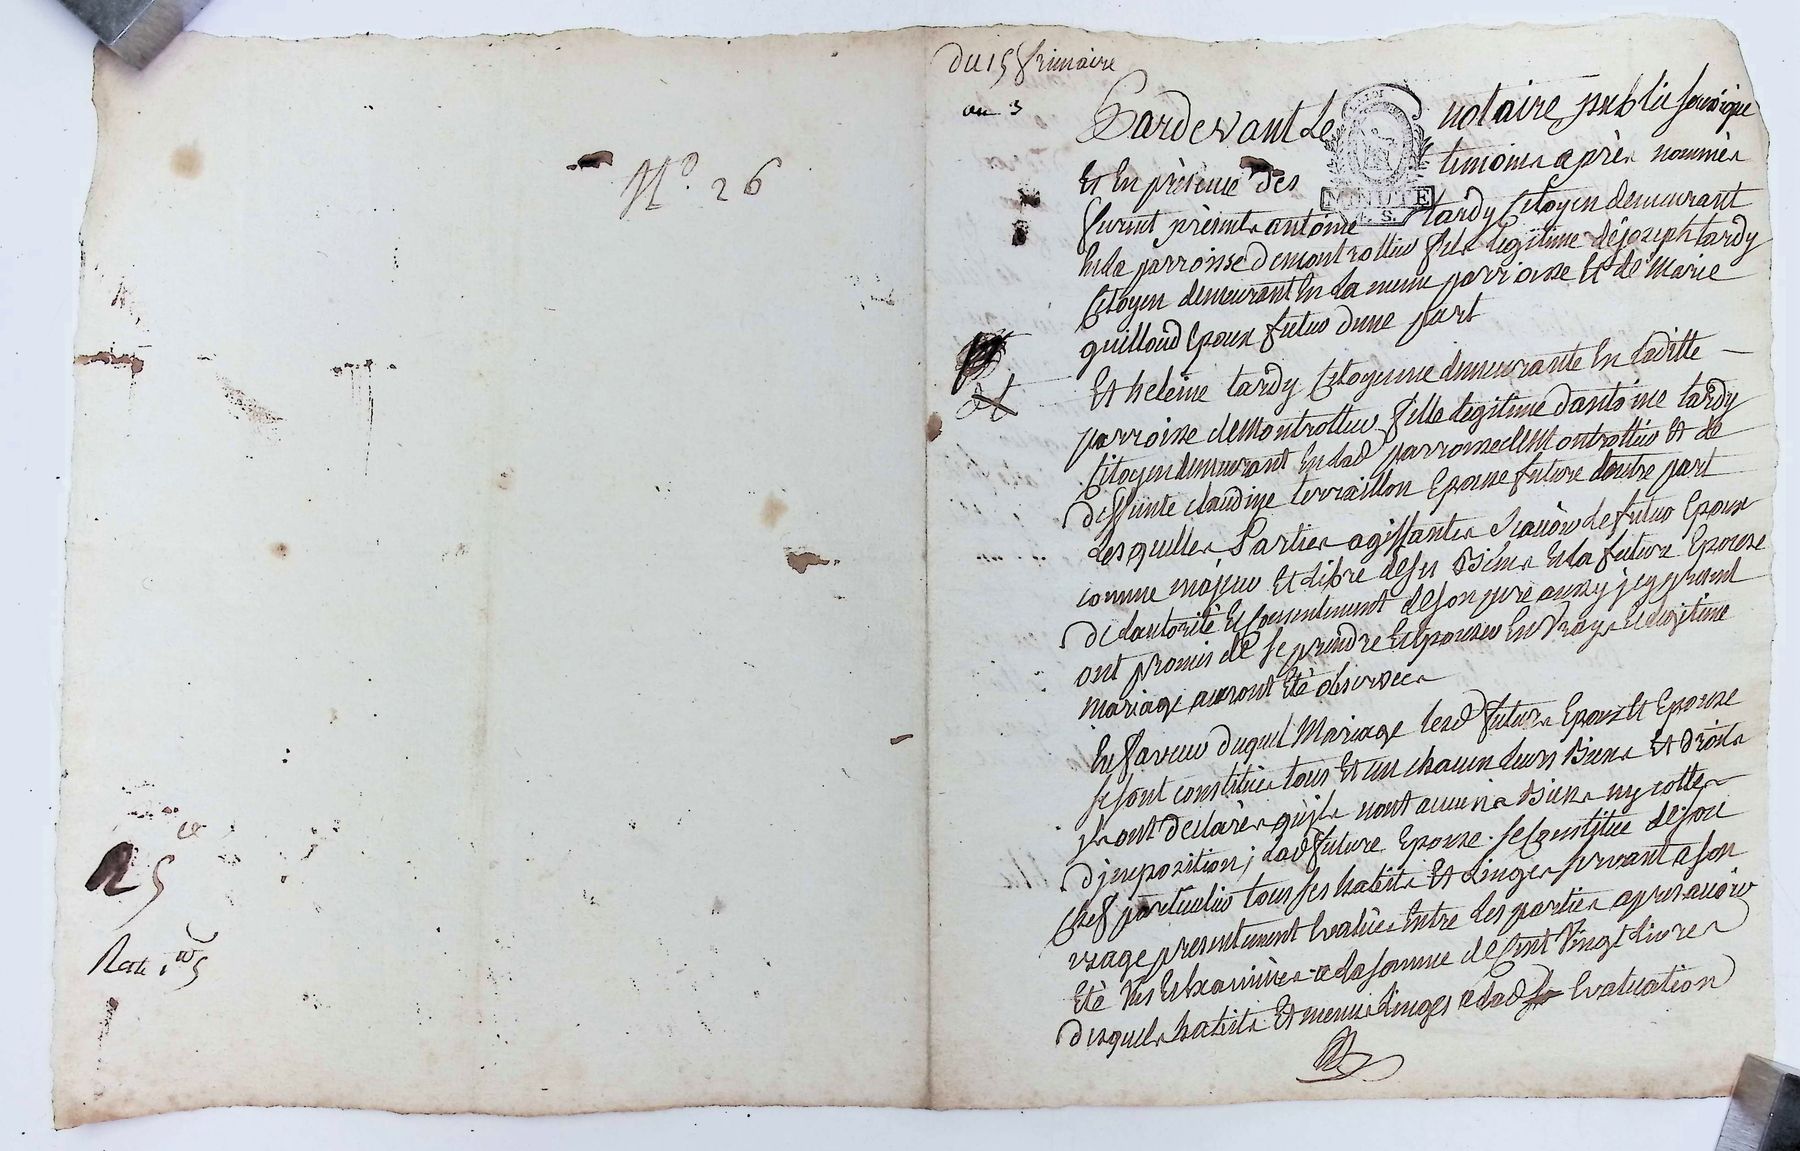 N.º 26
25
du 15 frimaire
an 3
Pardevant Le notaire public soussigne
Et En présence des temoins après nommés
MINUTE
furent présents antoine tardy Citoyen demeurant
En la parroisse demontrottier fils legitime de joseph tardy
Citoyen demeurant En la meme parroisse Et de Marie
guilloud Epoux futur dune part
Et heleine tardy Citoyenne demeurante En laditte
parroisse demontrottier fille legitime dantoine tardy
Citoyen demeurant En lad parroisse demontrottier Et de
deffunte claudine terraillon Epouse future dautre part
Lesquelles Parties agissantes scavoir le futur Epoux
comme majeur Et Libre de ses Biens Et la future Epouse
de lautorité Et consentement de son pere aussy jcy present
ont promis de se prendre Et Epouser En Vraye Et legitime
mariage auront Eté observées
En faveur duquel Mariage lesd futurs Epoux Et Epouse
se sont constitués tous Et un chacun leurs Biens Et droits
jls ont declarés quils nont aucuns Biens ny cottes
djmposition; lad future Epouse se Constitue de son
Chef particulier tous ses habits Et Linges servant a son
usage presentement Evalués Entre les parties apres avoir
Eté Vus Et Examinés a la somme de Cent Vingt Livres
desquels habits Et menus linges a lad Evaluation